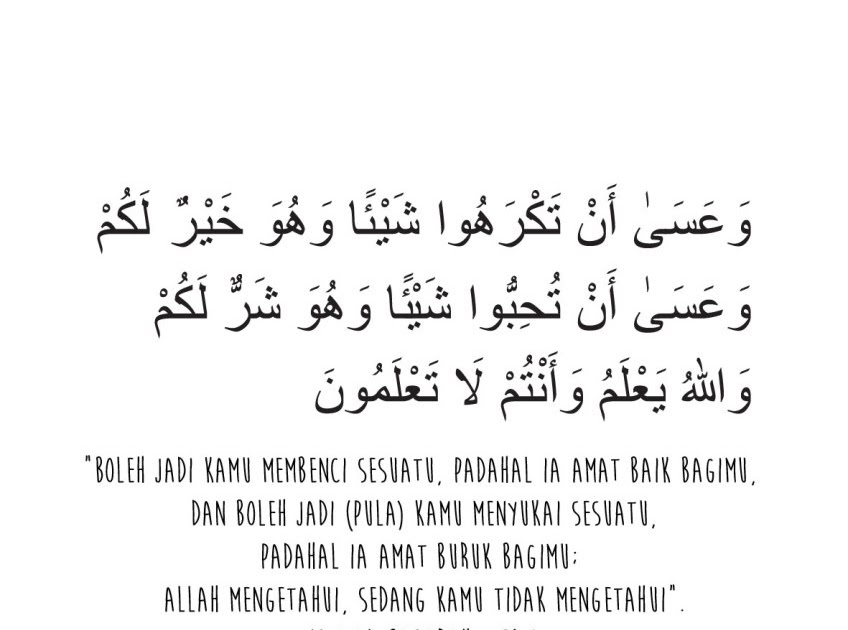 وَعَسَىٰ أَنْ تَكْرَهُوا شَيْئًا وَهُوَ خَيْرٌ لَكُمْ
وَعَسَىٰ أَنْ تُحِبُّوا شَيْئًا وَهُوَ شَرٌّ لَكُمْ
وَاللهُ يَعْلَمُ وَأَنْتُمْ لَا تَعْلَمُونَ
"BOLEH JADI KAMU MEMBENCI SESUATU, PADAHAL IA AMAT BAIK BAGIMU,
DAN BOLEH JADI (PULA) KAMU MENYUKAI SESUATU,
PADAHAL IA AMAT BURUK BAGIMU;
ALLAH MENGETAHUI, SEDANG KAMU TIDAK MENGETAHUI".